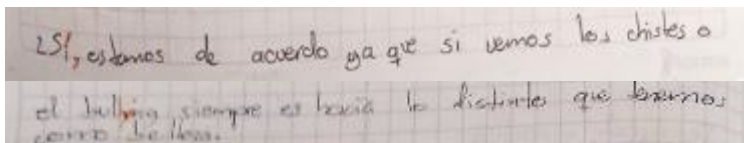 2Sí, estamos de acuerdo ya que si vemos los chistes o
el bulling siempre es hacia lo distintos que tenemos
como